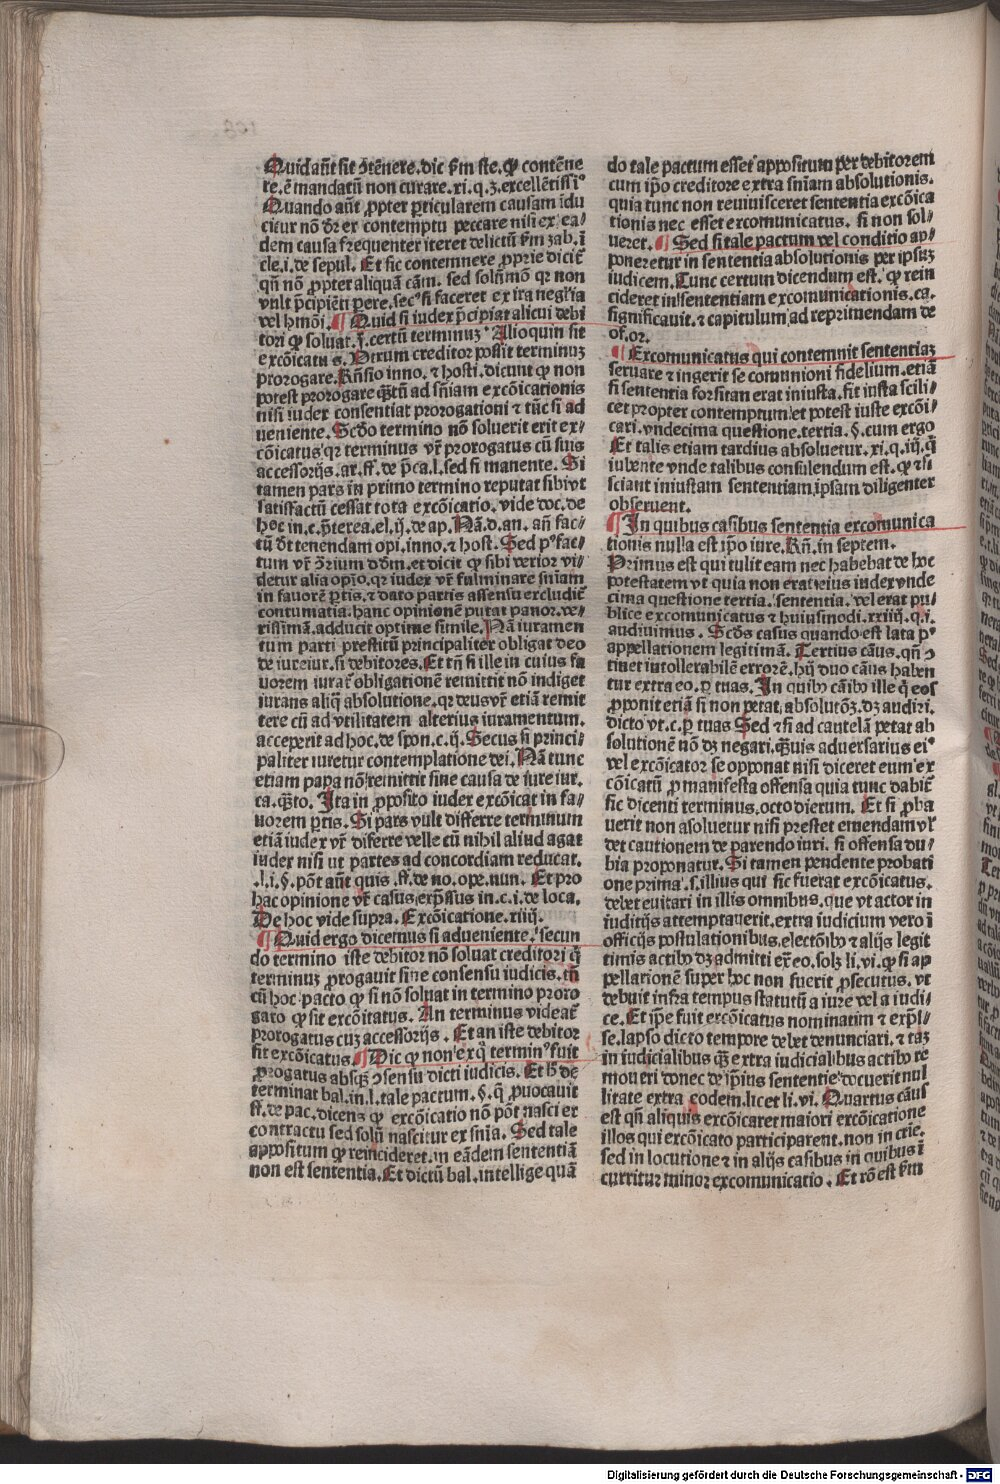 Quid aūt sit ɔ̄tēnere. dic ẜm ste. ꝙ contēne
re. ē mandatū non curare. xi. q. 3. excellētissi⁹
Quando aūt ꝓpter ꝑticularem causam īdu
citur nō dr̄ ex contemptu peccare nisi ex ea⸗
dem causa frequenter iteret delictū ẜm zab. ī
cle. i. de sepul. Et sic contemnere ꝓprie dicit̄
qn̄ nō ꝓpter aliquā cām. sed solūmō qr non
vult p̄cipiēti ꝑere. sec⁹ si faceret ex ira negl̄ia
vel hmōi. ¶ Quid si iudex p̄cipiat alicui debi
tori ꝙ soluat. ī. certū terminuꝫ Alioquin sit
excōicatus. Utrum creditor possit terminuꝫ
prorogare. Rn̄sio inno. ⁊ hosti. dicunt ꝙ non
potest prorogare qͣꝫtū ad sn̄iam excōicationis
nisi iudex consentiat prorogationi ⁊ tūc si ad
ueniente. Scd̄o termino nō soluerit erit ex⸗
cōicatus qr terminus vr̄ prorogatus cū suis
accessorijs. ar. ff. de p̄ca. l. sed si manente. Si
tamen pars in primo termino reputat sibi vt
satisfactū cessat tota excōicatio. vide doc. de
hoc in. c. p̄terea. el. ij. de ap. Nā. d. an. aū fac⸗
tū d̄t tenendam opi. inno. ⁊ host. Sed p⁹ fac⸗
tum vr̄ ɔ̄rium d̄dm. et dicit ꝙ sibi verior vi⸗
detur alia opīo. qr iudex vr̄ fulminare sn̄iam
in fauorē ꝑtis. ⁊ dato partis assensu excludit̄
contumatia. hanc opinionē putat panor. ve⸗
rissimā. adducit optime simile. Nā iuramen
tum parti prestitū principaliter obligat deo
de iureiur. si debitores. Et tn̄ si ille in cuius fa
uorem iurat̄ obligationē remittit nō indiget
iurans aliq̄ absolutione. qr deus vr̄ etiā remit
tere cū ad vtilitatem alterius iuramentum.
acceperit ad hoc. de spon. c. ij. Secus si princi⸗
paliter iuretur contemplatione dei. Nā tunc
etiam papa nō remittit sine causa de iure iur.
ca. qͣꝫto. Ita in ꝓposito iudex excōicat in fa⸗
uorem ꝑtis. Si pars vult differre terminum
etiā iudex vr̄ differre velle cū nihil aliud agat
iudex nisi ut partes ad concordiam reducat.
.l. i. §. pōt aūt quis. ff. de no. ope. nun. Et pro
hac opinione vr̄ casus exp̄ssus in. c. i. de loca.
De hoc vide supra. Excōicatione. xiiij.
¶ Quid ergo dicemus si adueniente. secun
do termino iste debitor nō soluat creditori q̄
terminuꝫ ꝓrogauit sine consensu iudicis. tn̄
cū hoc pacto ꝙ si nō soluat in termino proro
gato ꝙ sit excōitatus. An terminus videat̄
prorogatus cuꝫ accessorijs. Et an iste debitor
sit excōicatus. ¶ Dic ꝙ non ex q̄ termin⁹ fuit
ꝓrogatus absqꝫ ɔsensu dicti iudicis. Et h̄ de
terminat bal. in. l. tale pactum. §. q̄ ꝓuocauit
ff. de pac. dicens ꝙ excōicatio nō pōt nasci ex
contractu sed solū nascitur ex sn̄ia. Sed tale
appositum ꝙ reincideret. in eādem sententiā
non est sententia. Et dictū bal. intellige quā
do tale pactum esset appositum per debitorem
cum ip̄o creditore extra sn̄iam absolutionis.
quia tunc non reuiuisceret sententia excōica
tionis nec esset excomunicatus. si non sol⸗
ueret. ¶ Sed si tale pactum vel conditio ap⸗
poneretur in sententia absolutionis per ipsuꝫ
iudicem. Tunc certum dicendum est. ꝙ rein
cideret in sententiam excomunicationis. ca.
significauit. ⁊ capitulum ad reprimendam de
of. or.
¶ Excomunicatus qui contemnit sententiaꝫ
seruare ⁊ ingerit se comunioni fidelium. etiā
si sententia forsitan erat iniusta. fit iusta scili⸗
cet propter contemptum et potest iuste excōi⸗
cari. vndecima questione. tertia. §. cum ergo
Et talis etiam tardius absoluetur. xi. q. iij. q̄
iubente vnde talibus consulendum est. ꝙ ⁊si
sciant iniustam sententiam ipsam diligenter
obseruent.
¶ In quibus casibus sententia excomunica
tionis nulla est ip̄o iure. Rn̄. in septem.
Primus est qui tulit eam nec habebat de hoc
potestatem vt quia non erat eius iudex vnde
cima questione tertia. sententia. vel erat pu⸗
blice excomunicatus ⁊ huiusmodi. xxiiij. q. i.
audiuimus. Scd̄s casus quando est lata p⁹
appellationem legitimā. Tertius cāus. qn̄ ɔ
tinet intollerabilē errorē. hij duo cāus haben
tur extra eo. ꝑ tuas. In quibꝰ cāibꝰ ille q̄ eos
ꝓponit etiā si non petat, absolutōꝫ. dꝫ audiri.
dicto vt. c. ꝑ tuas Sed ⁊ si ad cautelā petat ab
solutionē nō dꝫ negari. qͣuis aduersarius ei⁹
vel excōicator se opponat nisi diceret eum ex
cōicatū ꝓ manifesta offensa quia tunc dabit̄
sic dicenti terminus, octo dierum. Et si ꝓba
uerit non asoluetur nisi prestet emendam vl̓
det cautionem de parendo iuri. si offensa du⸗
bia proponatur. Si tamen pendente probati
one prima. s. illius qui sic fuerat excōicatus.
debet euitari in illis omnibus. que vt actor in
iuditijs attemptauerit. extra iudicium vero ī
officijs postulationibus, electōibꝰ ⁊ alijs legit
timis actibꝰ dꝫ admitti ex̄ eo. solꝫ li. vi. ꝙ si ap
pellationē super hoc non fuerit ꝓsecutus. vt
debuit infra tempus statutū a iure vel a iudi⸗
ce. Et ip̄e fuit excōicatus nominatim ⁊ exp̄s⸗
se. lapso dicto tempore debet denunciari. ⁊ taꝫ
in iudicialibus qͣꝫ extra iudicialibus actibꝰ re
moueri donec de ip̄ius sententie docuerit nul
litate extra eodem. licet li. vi. Quartus cāus
est qn̄ aliquis excōicaret maiori excōicatione
illos qui excōicato participarent. non in crīe.
sed in locutione ⁊ in alijs casibus in quibus ī
curritur minor excomunicatio. Et rō est ẜm
Digitalisierung gefördert durch die Deutsche Forschungsgemeinschaft - DFG